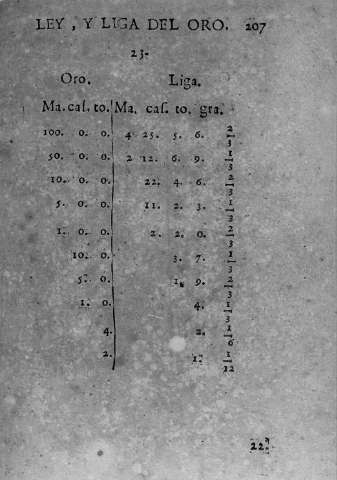 LEY, Y LIGA DEL ORO. 207
23.
Oro. Liga.
Ma. cas. to. Ma. cas. to. gra.
100. 0. 0. 4 25. 5. 6. 2/3
50. 0. 0. 2 12. 6. 9. 1/3
10. 0. 0. 22. 4. 6. 2/3
5. 0. 0. 11. 2. 3. 1/3
1. 0. 0. 2. 2. 0. 2/3
10. 0. 3. 7. 1/3
5. 0. 1. 9. 2/3
1. 0. 4. 1/3
4. 2. 1/6
2. 1. 1/12
22.